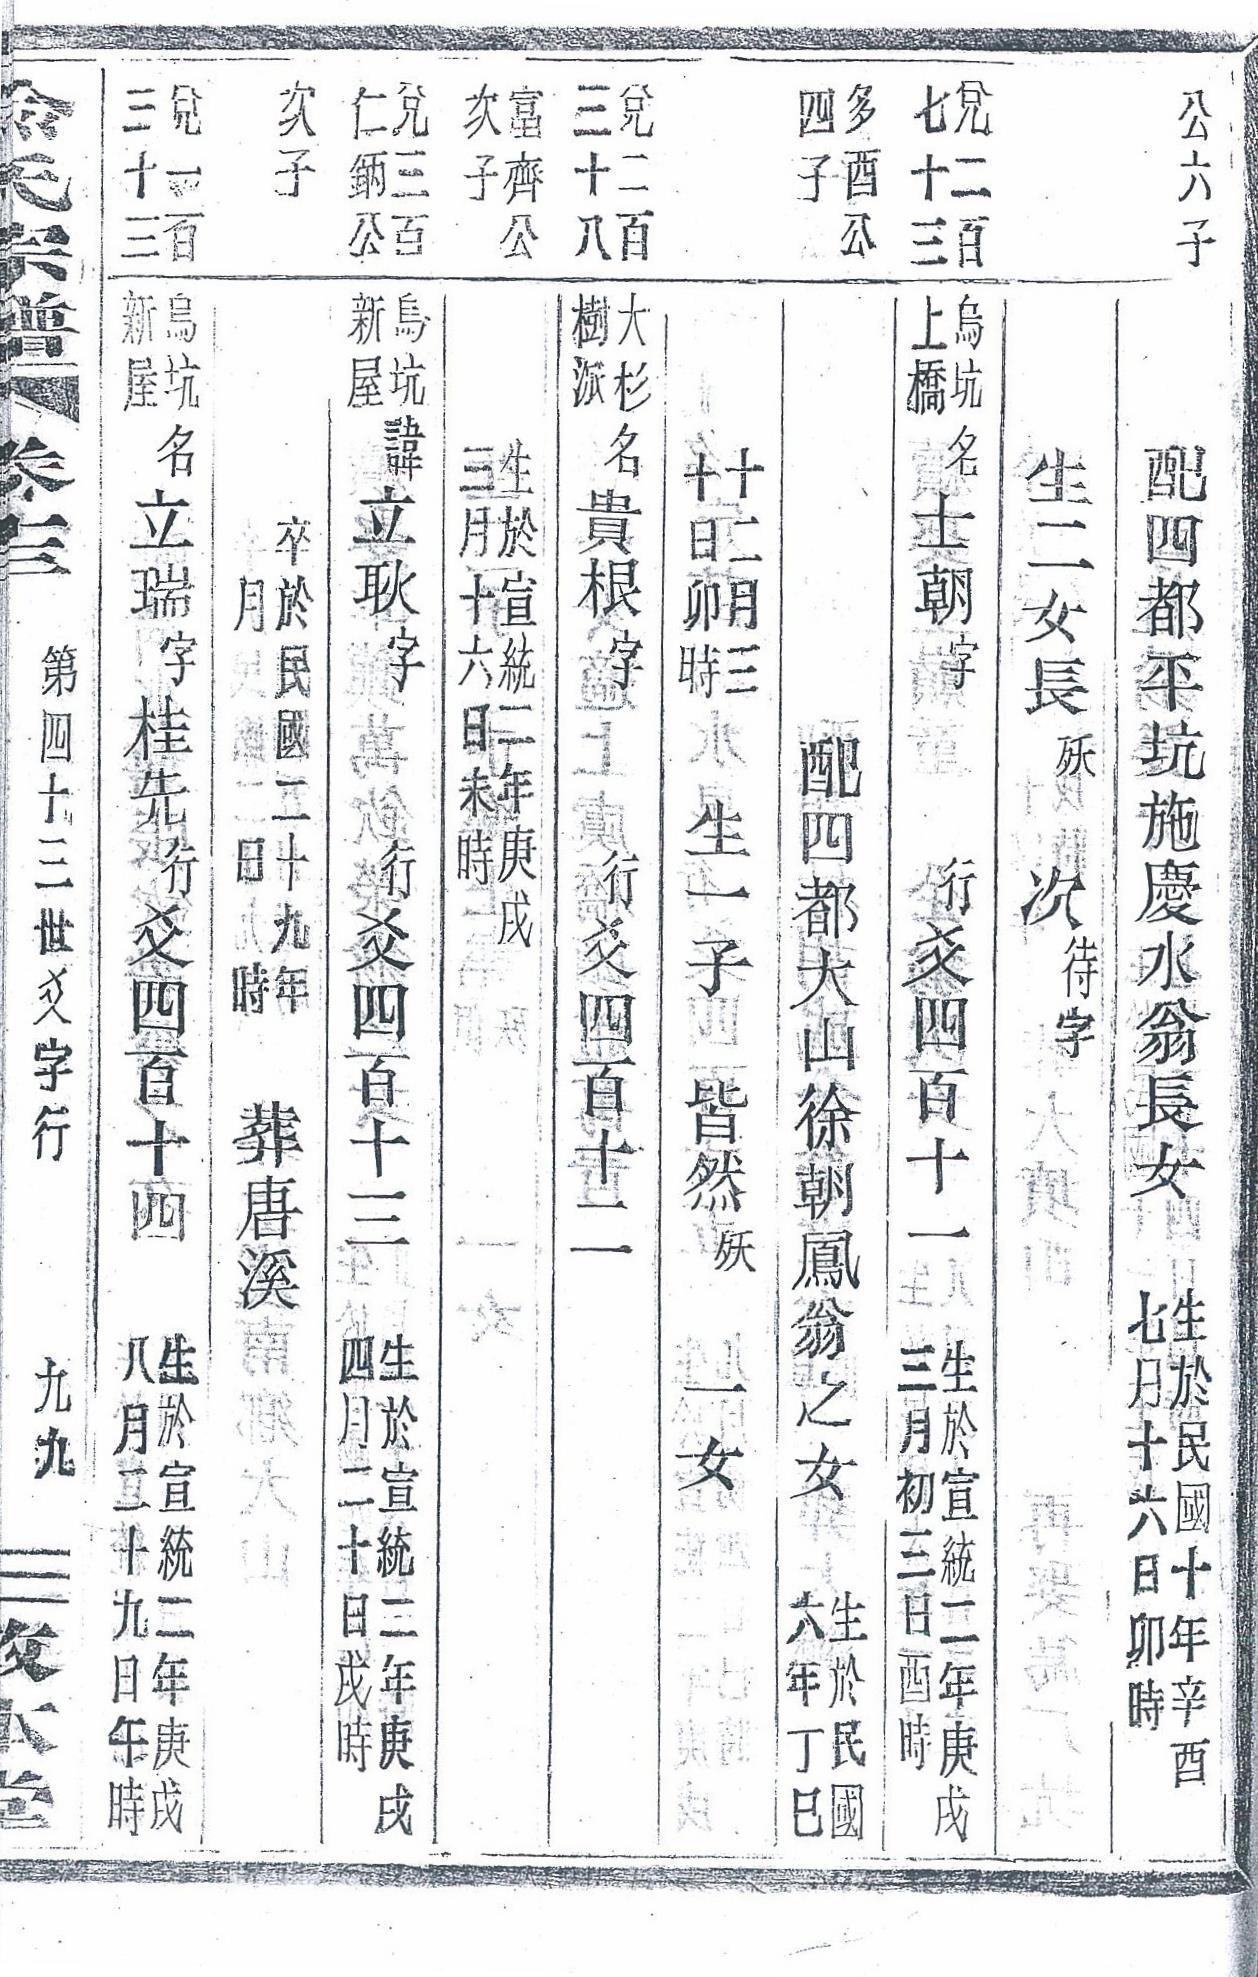 公六子
配四都平坑施慶水翁長女
生於民國十年辛酉
七月十六日卯時
生二女長
殀
次
待字
兌二百
七十三
烏坑
上橋
名士朝字
行爻四百十一
生於宣統二年庚戌
三月初三日酉時
多酉公
四子
配四都大山徐朝鳳翁之女
生於民國
六年丁巳
十二月三
十日卯時
生一子皆然
殀
一女
兌二百
三十八
大杉
樹派
名貴根字
行爻四百十二
富齊公
次子
生於宣統二年庚戌
三月十六日未時
兌三百
仁鈵公
烏坑
新屋
諱立耿字
行爻四百十三
生於宣統二年庚戌
四月二十日戌時
次子
卒於民國二十九年
月
日
時
葬唐溪
兌一百
三十三
烏坑
新屋
名立瑞字桂先
行爻四百十四
生於宣統二年庚戌
八月二十九日午時
氏宗譜
卷三
第四十三世爻字行
九九
本堂